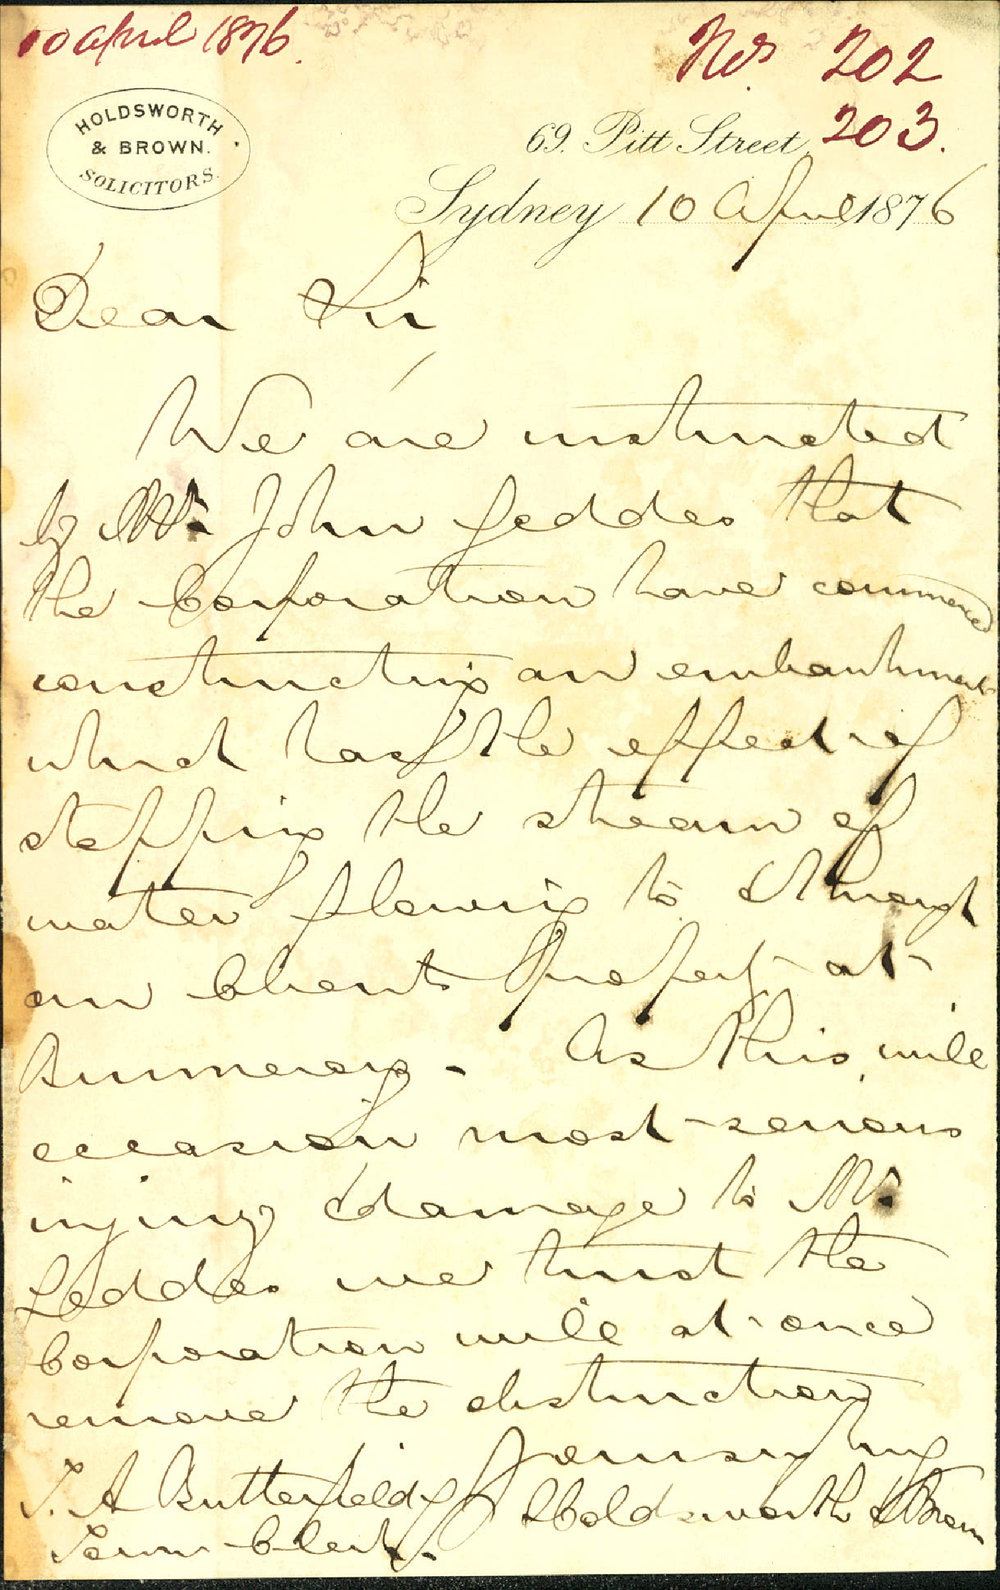 10 April 1876.
Nos 202
203.
HOLDSWORTH
& BROWN.
SOLICITORS.
69. Pitt Street
Sydney 10 April 1876
Dear Sir
We are instructed
by Mr. John Geddes that
the Corporation have commenced
constructing an embankment
which has the effect of
stopping the stream of
water flowing to & through
our Client's property at
. As this will
occasion most serious
injury & damage to Mr.
Geddes we trust the
Corporation will at once
remove the obstruction
Yours truly
Holdsworth & Brown
T. A Butterfield Esq
Town Clerk.